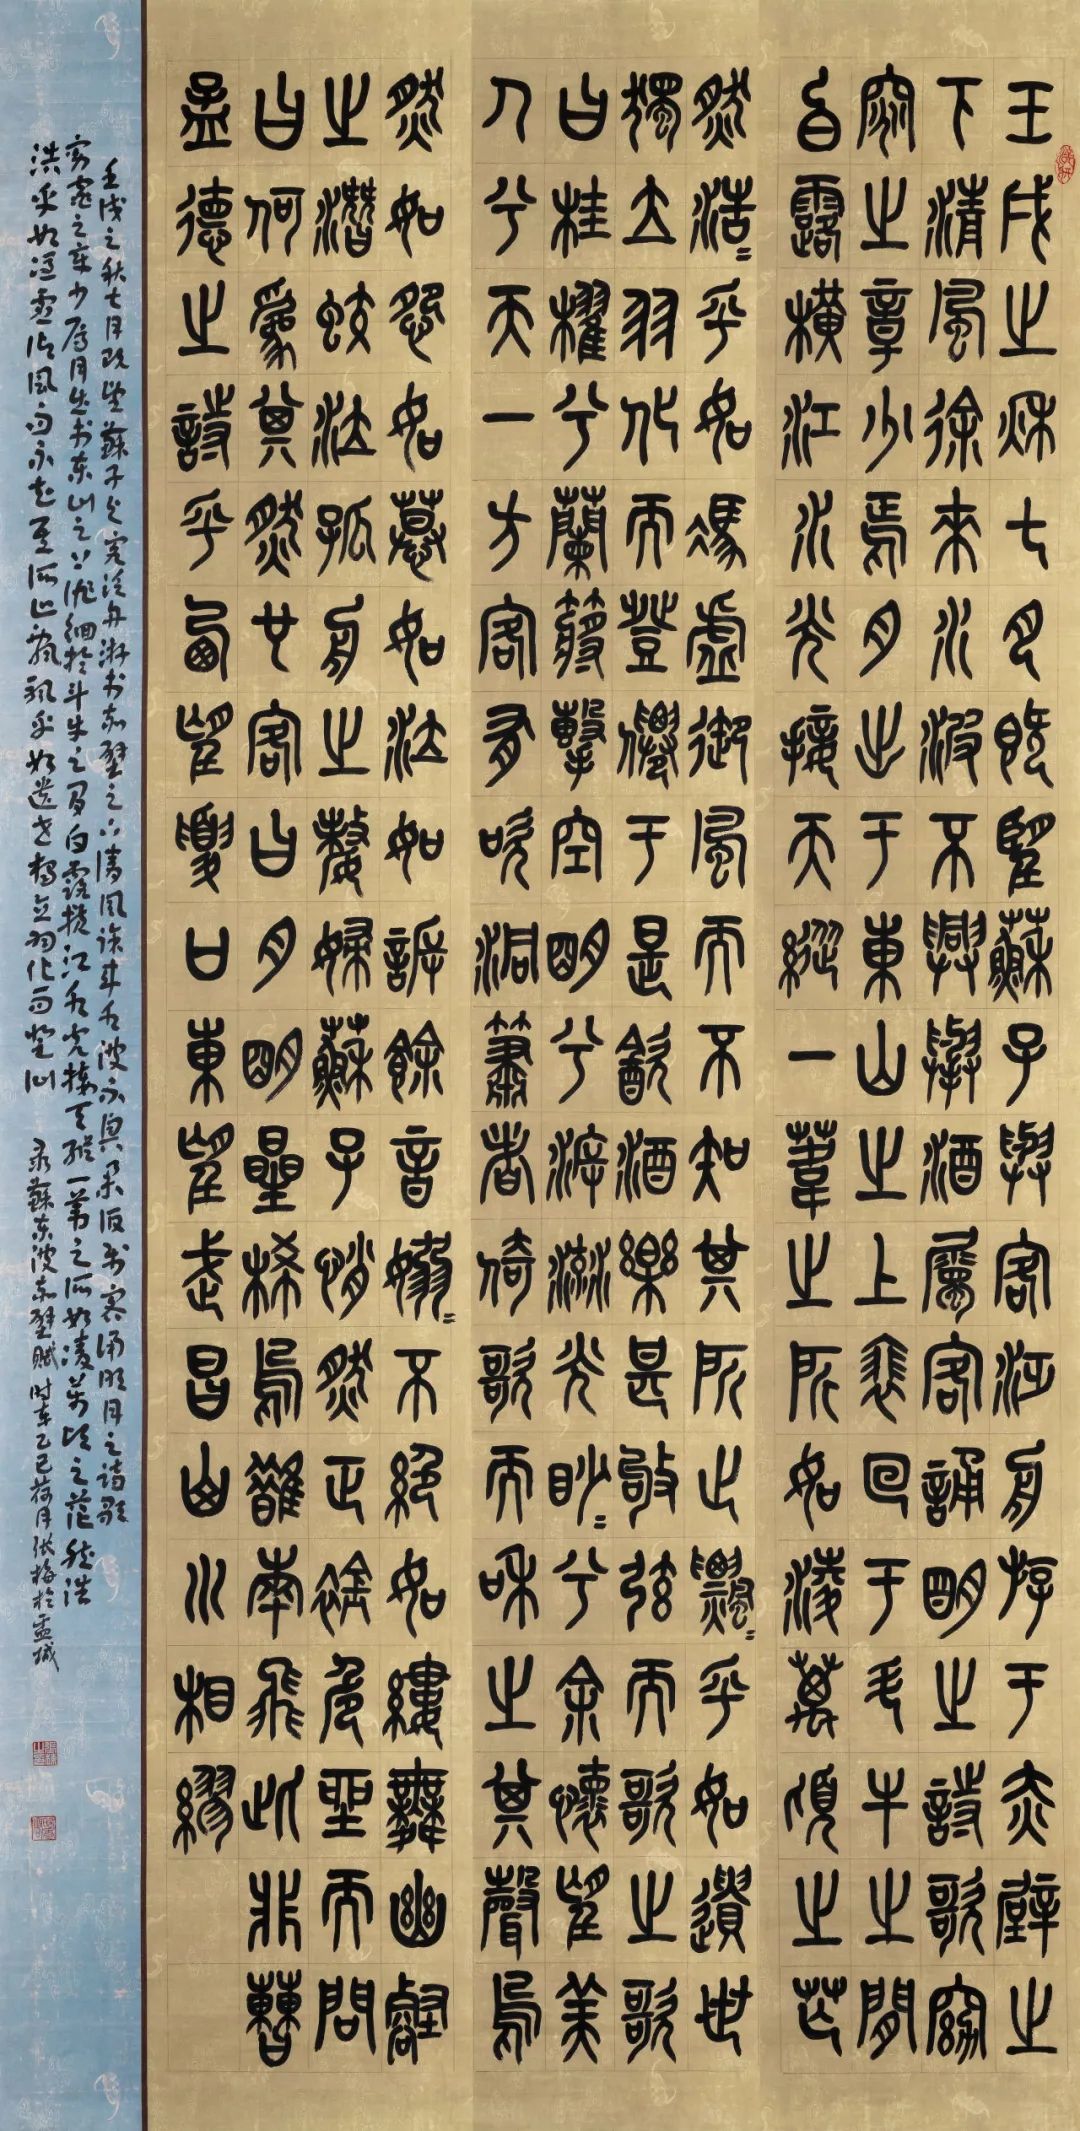 壬戌之秋七月既望蘇子與客泛舟游于赤壁之
下清風徐來水波不興舉酒屬客誦明之詩歌窈
窕之章少焉月出于東山之上裴回于斗牛之間
白露橫江水光接天縱一葦之所如淩萬頃之茫
然浩=乎如馮虛御風而不知其所止飄=乎如遺世
獨立羽化而登僊于是飲酒樂甚敂弦而歌之歌
曰桂櫂兮蘭槳擊空明兮泝流光眇=兮余懷望美
人兮天一方客有吹洞簫者倚歌而和之其聲烏
然如怨如慕如泣如訴餘音嫋=不絕如縷舞幽壑
之潛蛟泣孤舟之嫠婦蘇子愀然正襟危坐而問
曰何爲其然也客曰月明星稀烏鵲南飛此非曹
孟德之詩乎西望夏口東望武昌山川相繆
壬戌之秋七月既望蘇子与客泛舟游於赤壁之下清風徐来水波不兴举酒属客诵明月之诗歌
窈窕之章少焉月出於东山之上徘徊於斗牛之间白露横江水光接天纵一苇之所如凌万顷之茫然浩
浩乎如冯虚御风而不知其所止飘飘乎如遗世独立羽化而登仙 录蘇东坡赤壁赋 时在乙巳荷月张梅於盂城